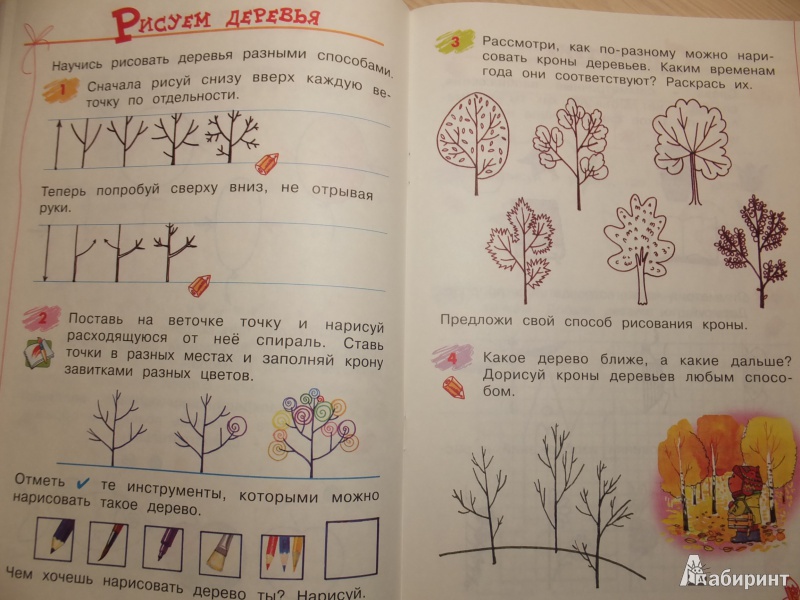 Рисуем деревья
Научись рисовать деревья разными способами.
1 Сначала рисуй снизу вверх каждую ве-
точку по отдельности.
Теперь попробуй сверху вниз, не отрывая
руки.
2 Поставь на веточке точку и нарисуй
расходящуюся от неё спираль. Ставь
точки в разных местах и заполняй крону
завитками разных цветов.
Отметь ✓ те инструменты, которыми можно
нарисовать такое дерево.
Чем хочешь нарисовать дерево ты? Нарисуй.
3 Рассмотри, как по-разному можно нари-
совать кроны деревьев. Каким временам
года они соответствуют? Раскрась их.
Предложи свой способ рисования кроны.
4 Какое дерево ближе, а какие дальше?
Дорисуй кроны деревьев любым спосо-
бом.
Лабиринт